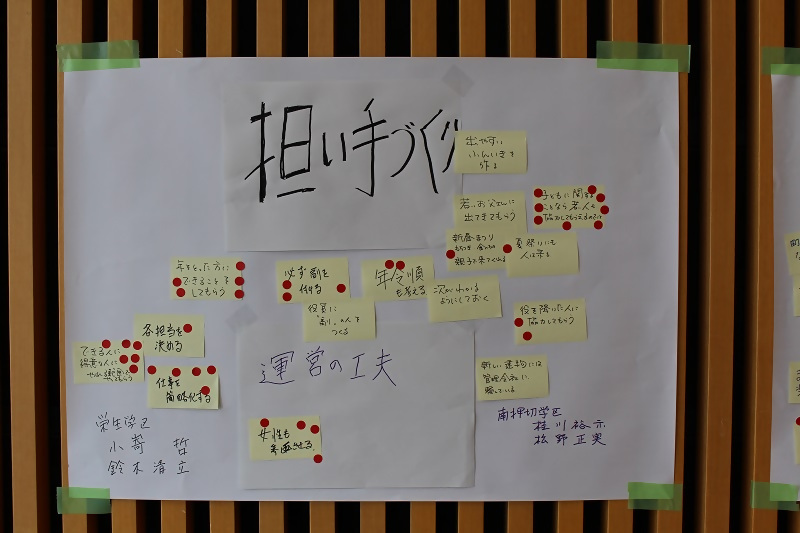 担い手づくり
出やすい
ふんいきを
作る
若いお父さんに
出てきてもらう
子どもに関する
ことなら若い人も
協力してもらえるのでは
新春まつり
親子で来てくれる
夏祭りにも
人は来る
年をとった方に
できることを
してもらう
必ず副を
付ける
年令順
も考える
次がわかる
ようにしておく
役員に
「副」の人を
つくる
役を降りた人に
協力してもらう
各担当を
決める
できる人に
得意な人に
仕事を
簡略化する
運営の工夫
新しい建物には
管理会社に
願いしている
女性も
参画させる
栄生学区
小嵜 哲
鈴木清立
南押切学区
桂川裕示
松野正実